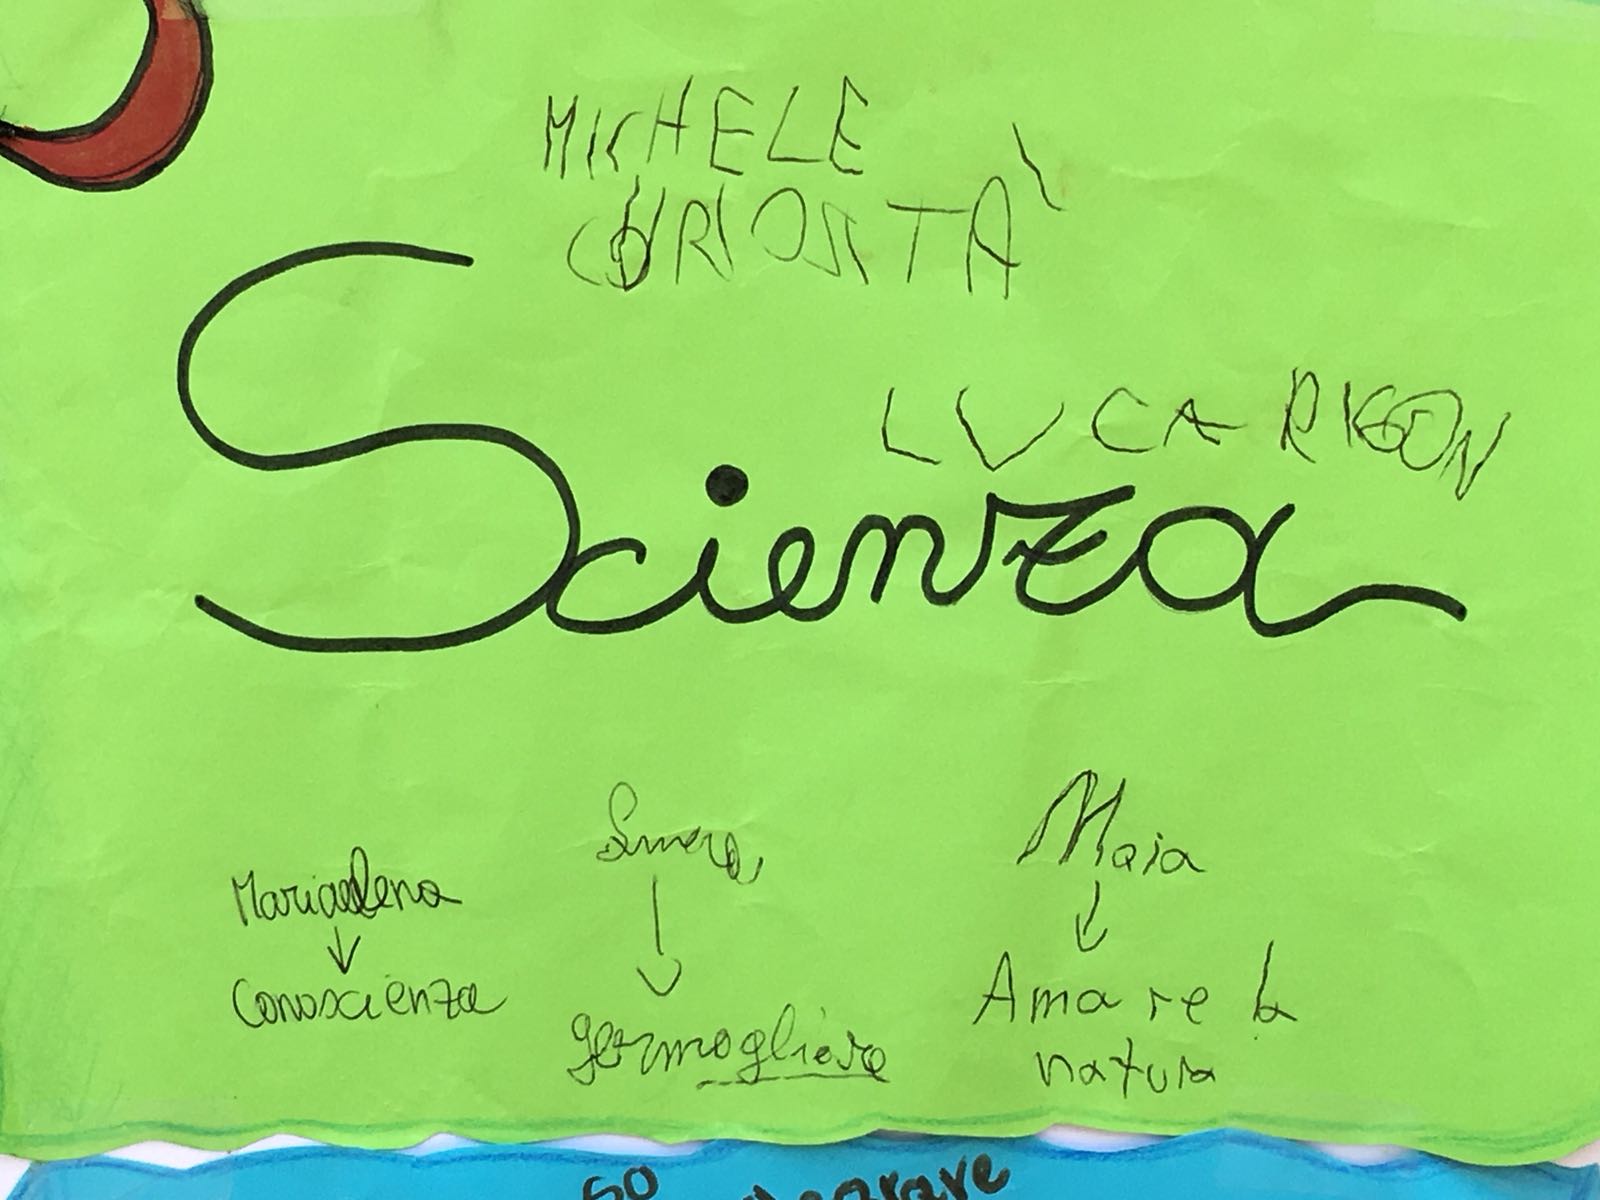 MICHELE
CURIOSITÀ
LUCA RIGON
Scienza
Mariaelena
Conoscienza
germogliare
Maia
Amare la
natura